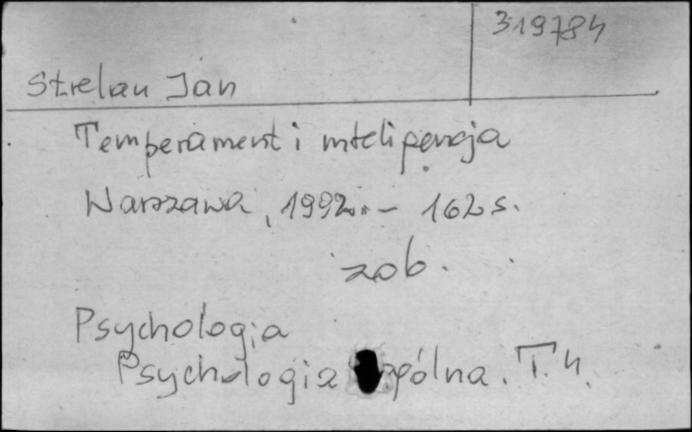 319784
Strelau Jan
Temperament i inteligencja
Warszawa, 1992. - 162 s.
zob.
Psychologia
Psychologia ogólna. T. 4.